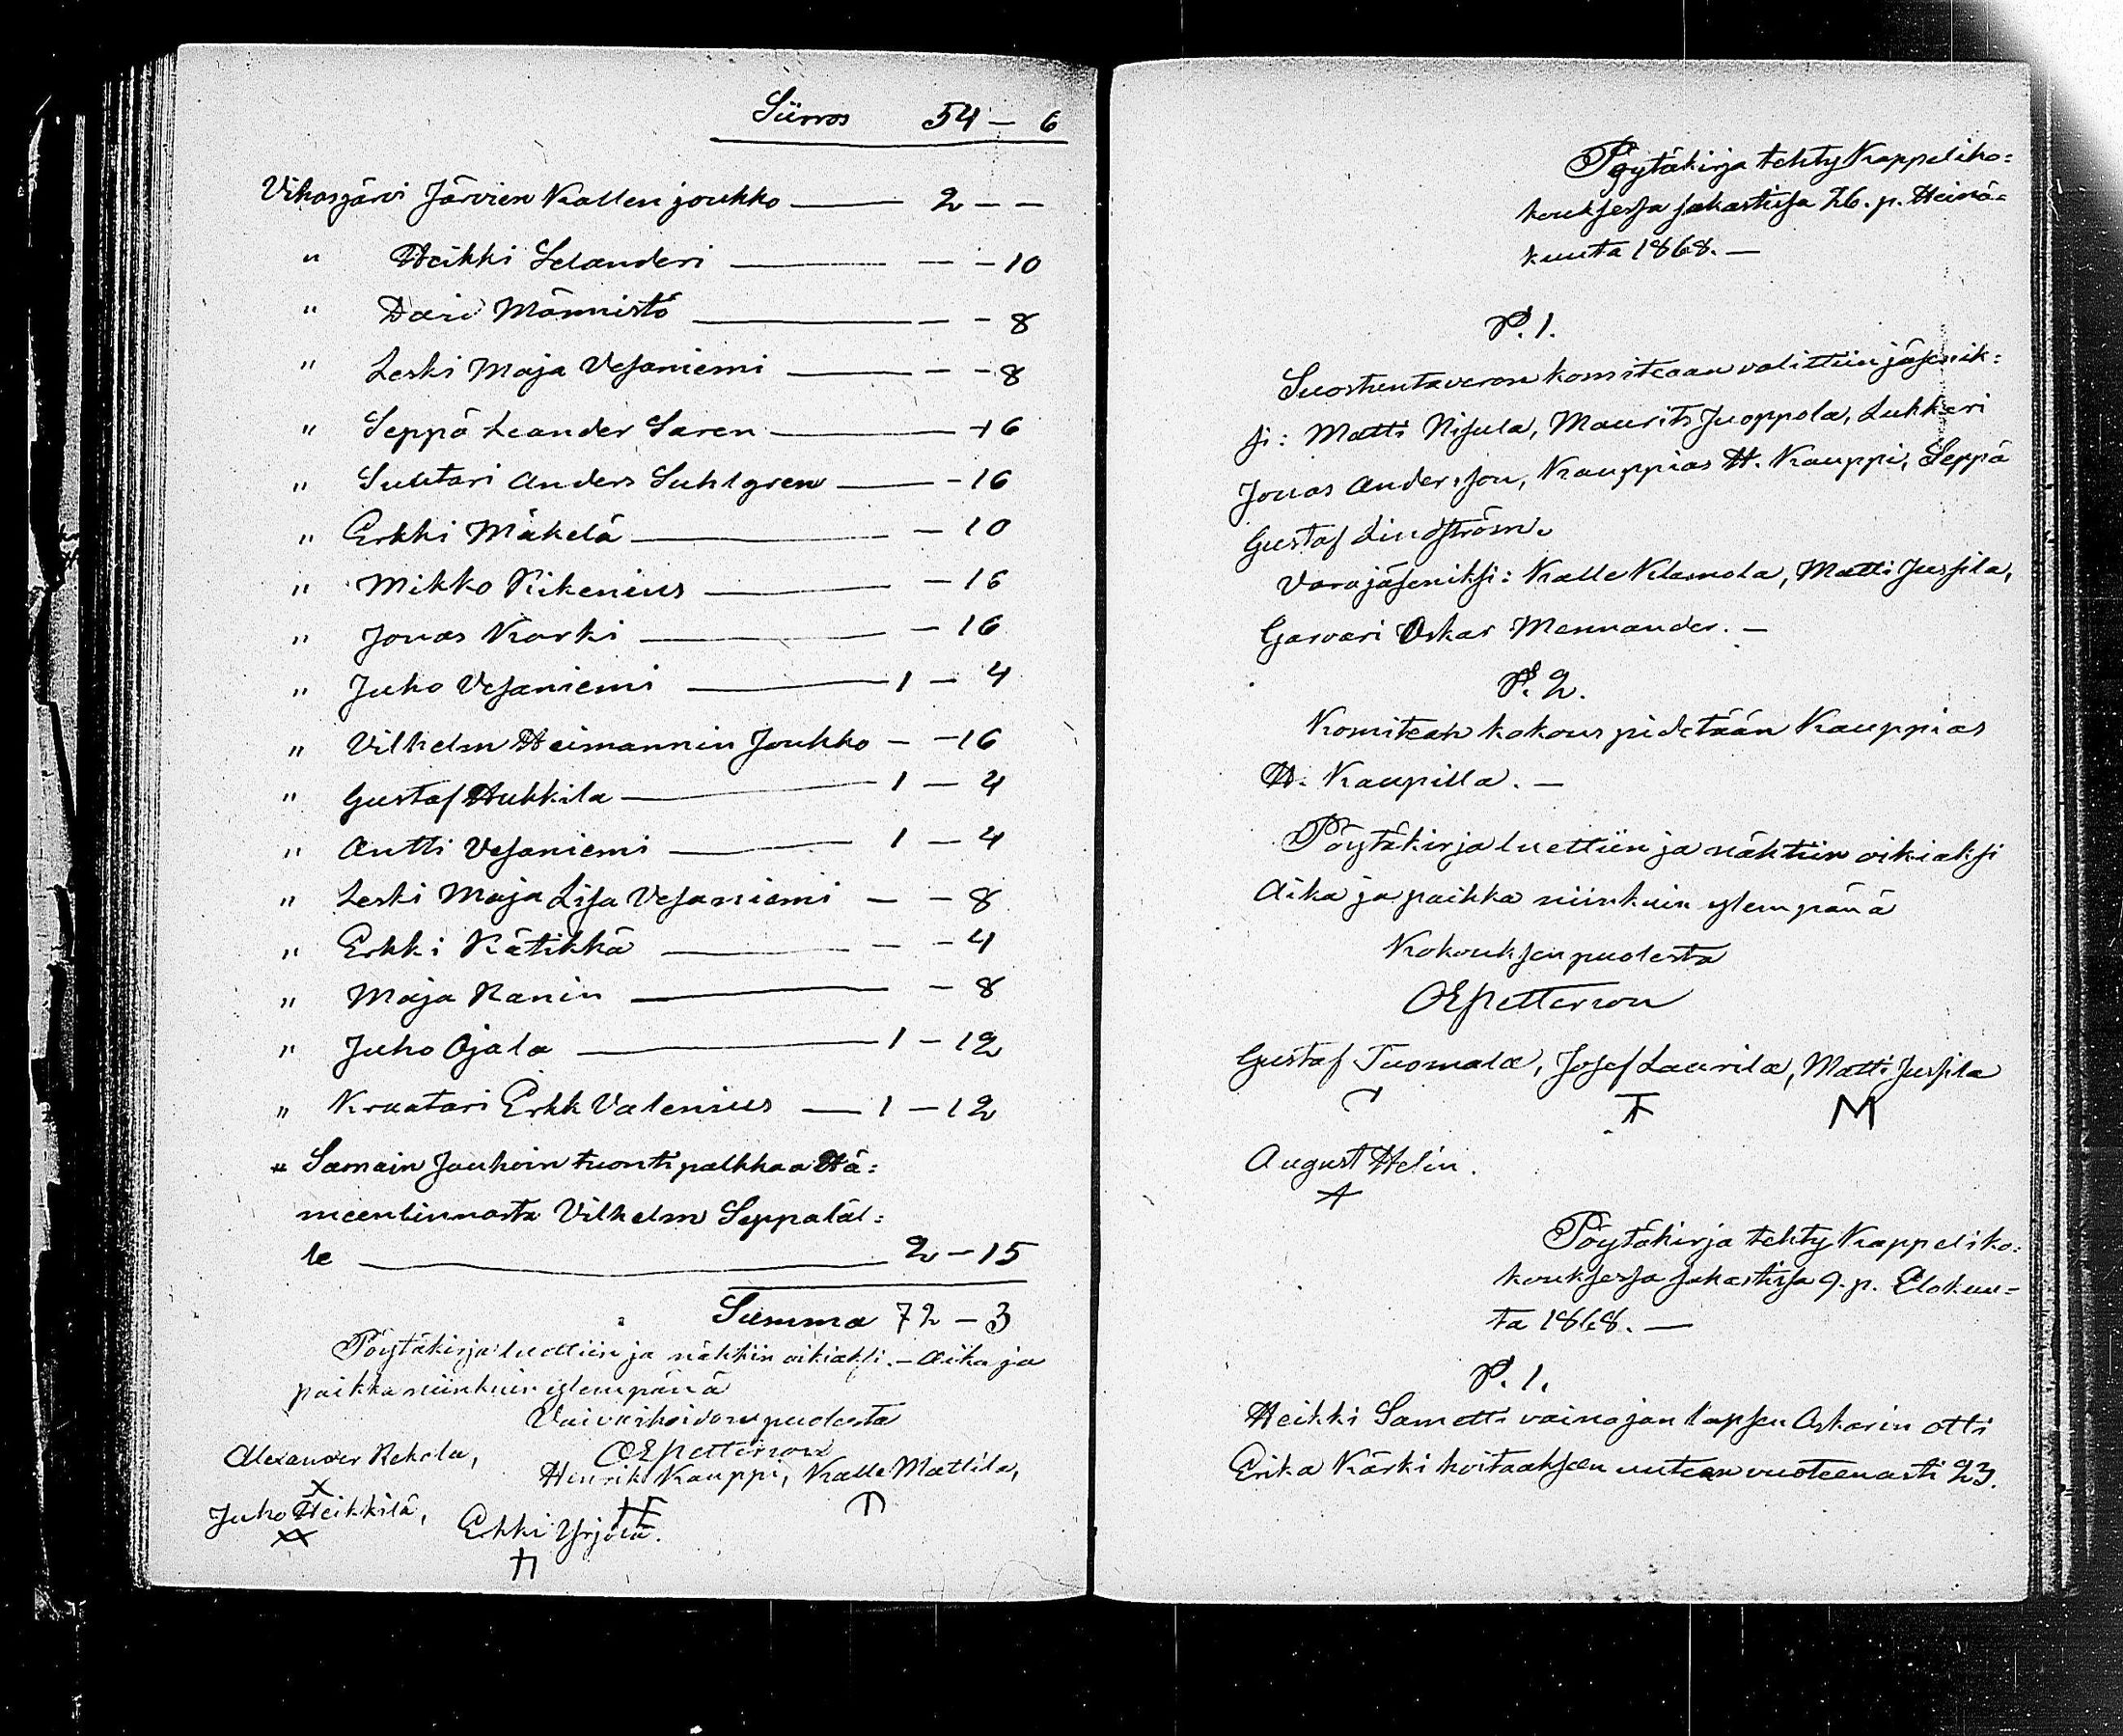 Siirros 54 - 6
Vihasjärvi Järvien Kallen joukko — 2 - -
" Heikki Selanderi — - - 10
" Davi Männistö — - - 8
" Leski Maja Vesaniemi — - - 8
" Seppä Leander Saren — - 16
" Suutari Anders Suhlgren — - 16
" Erkki Mäkelä — - 10
" Mikko Rikenius — - 16
" Jonas Karki — - 16
" Juho Vesaniemi — 1 - 4
" Vilhelm Heimannin Joukko - - 16
" Gustaf Hukkila — 1 - 4
" Antti Vesaniemi — 1 - 4
" Leski Maja Lisa Vesaniemi - - 8
" Erkki Kätikkä — - - 4
" Maja Ranin — - 8
" Juho Ojala — 1 - 12
" Kraatari Erkk Valenius — 1 - 12
" Samain Jauhoin tuonti palkkaa Hä=
meenlinnasta Vilhelm Seppäläl=
le — 2 - 15
Summa 72 - 3
Pöytäkirja luettiin ja nähtiin oikiaksi. - Aika ja
paikka niinkuin ylempänä
Vaivaishoidon puolesta
OEPetterson
Alexander Rekola, Henrik Kauppi, Kalle Mattila,
Juho Heikkilä, Erkki Yrjölä.
Pöytäkirja tehty Kappeliko=
kouksessa jakastissa 26. p. Heinä=
kuuta 1868. —
P. 1.
Suostuntaveron komiteaan valittiin jäsenik=
si: Matti Nisula, Maurits Juoppola, Lukkari
Jonas Andersson, Kauppias H. Kauppi, Seppä
Gustaf Lindström.
Varajäseniksi: Kalle Klemola, Matti Jussila,
Garvari Oskar Mennander. —
P. 2.
Komitean kokous pidetään Kauppias
H. Kaupilla. —
Pöytäkirja luettiin ja nähtiin oikiaksi
Aika ja paikka niinkuin ylempänä
Kokouksen puolesta
OEPetterson
Gustaf Tuomala, Josef Laurila, Matti Jussila
M
August Helin.
A
Pöytäkirja tehty Kappeliko=
kouksessa jakastissa 9. p. Elokuu=
ta 1868. —
P. 1.
Heikki Sametti vainajan lapsen Oskarin otti
Erika Kärki hoitaaksen uuteen vuoteen asti 23.